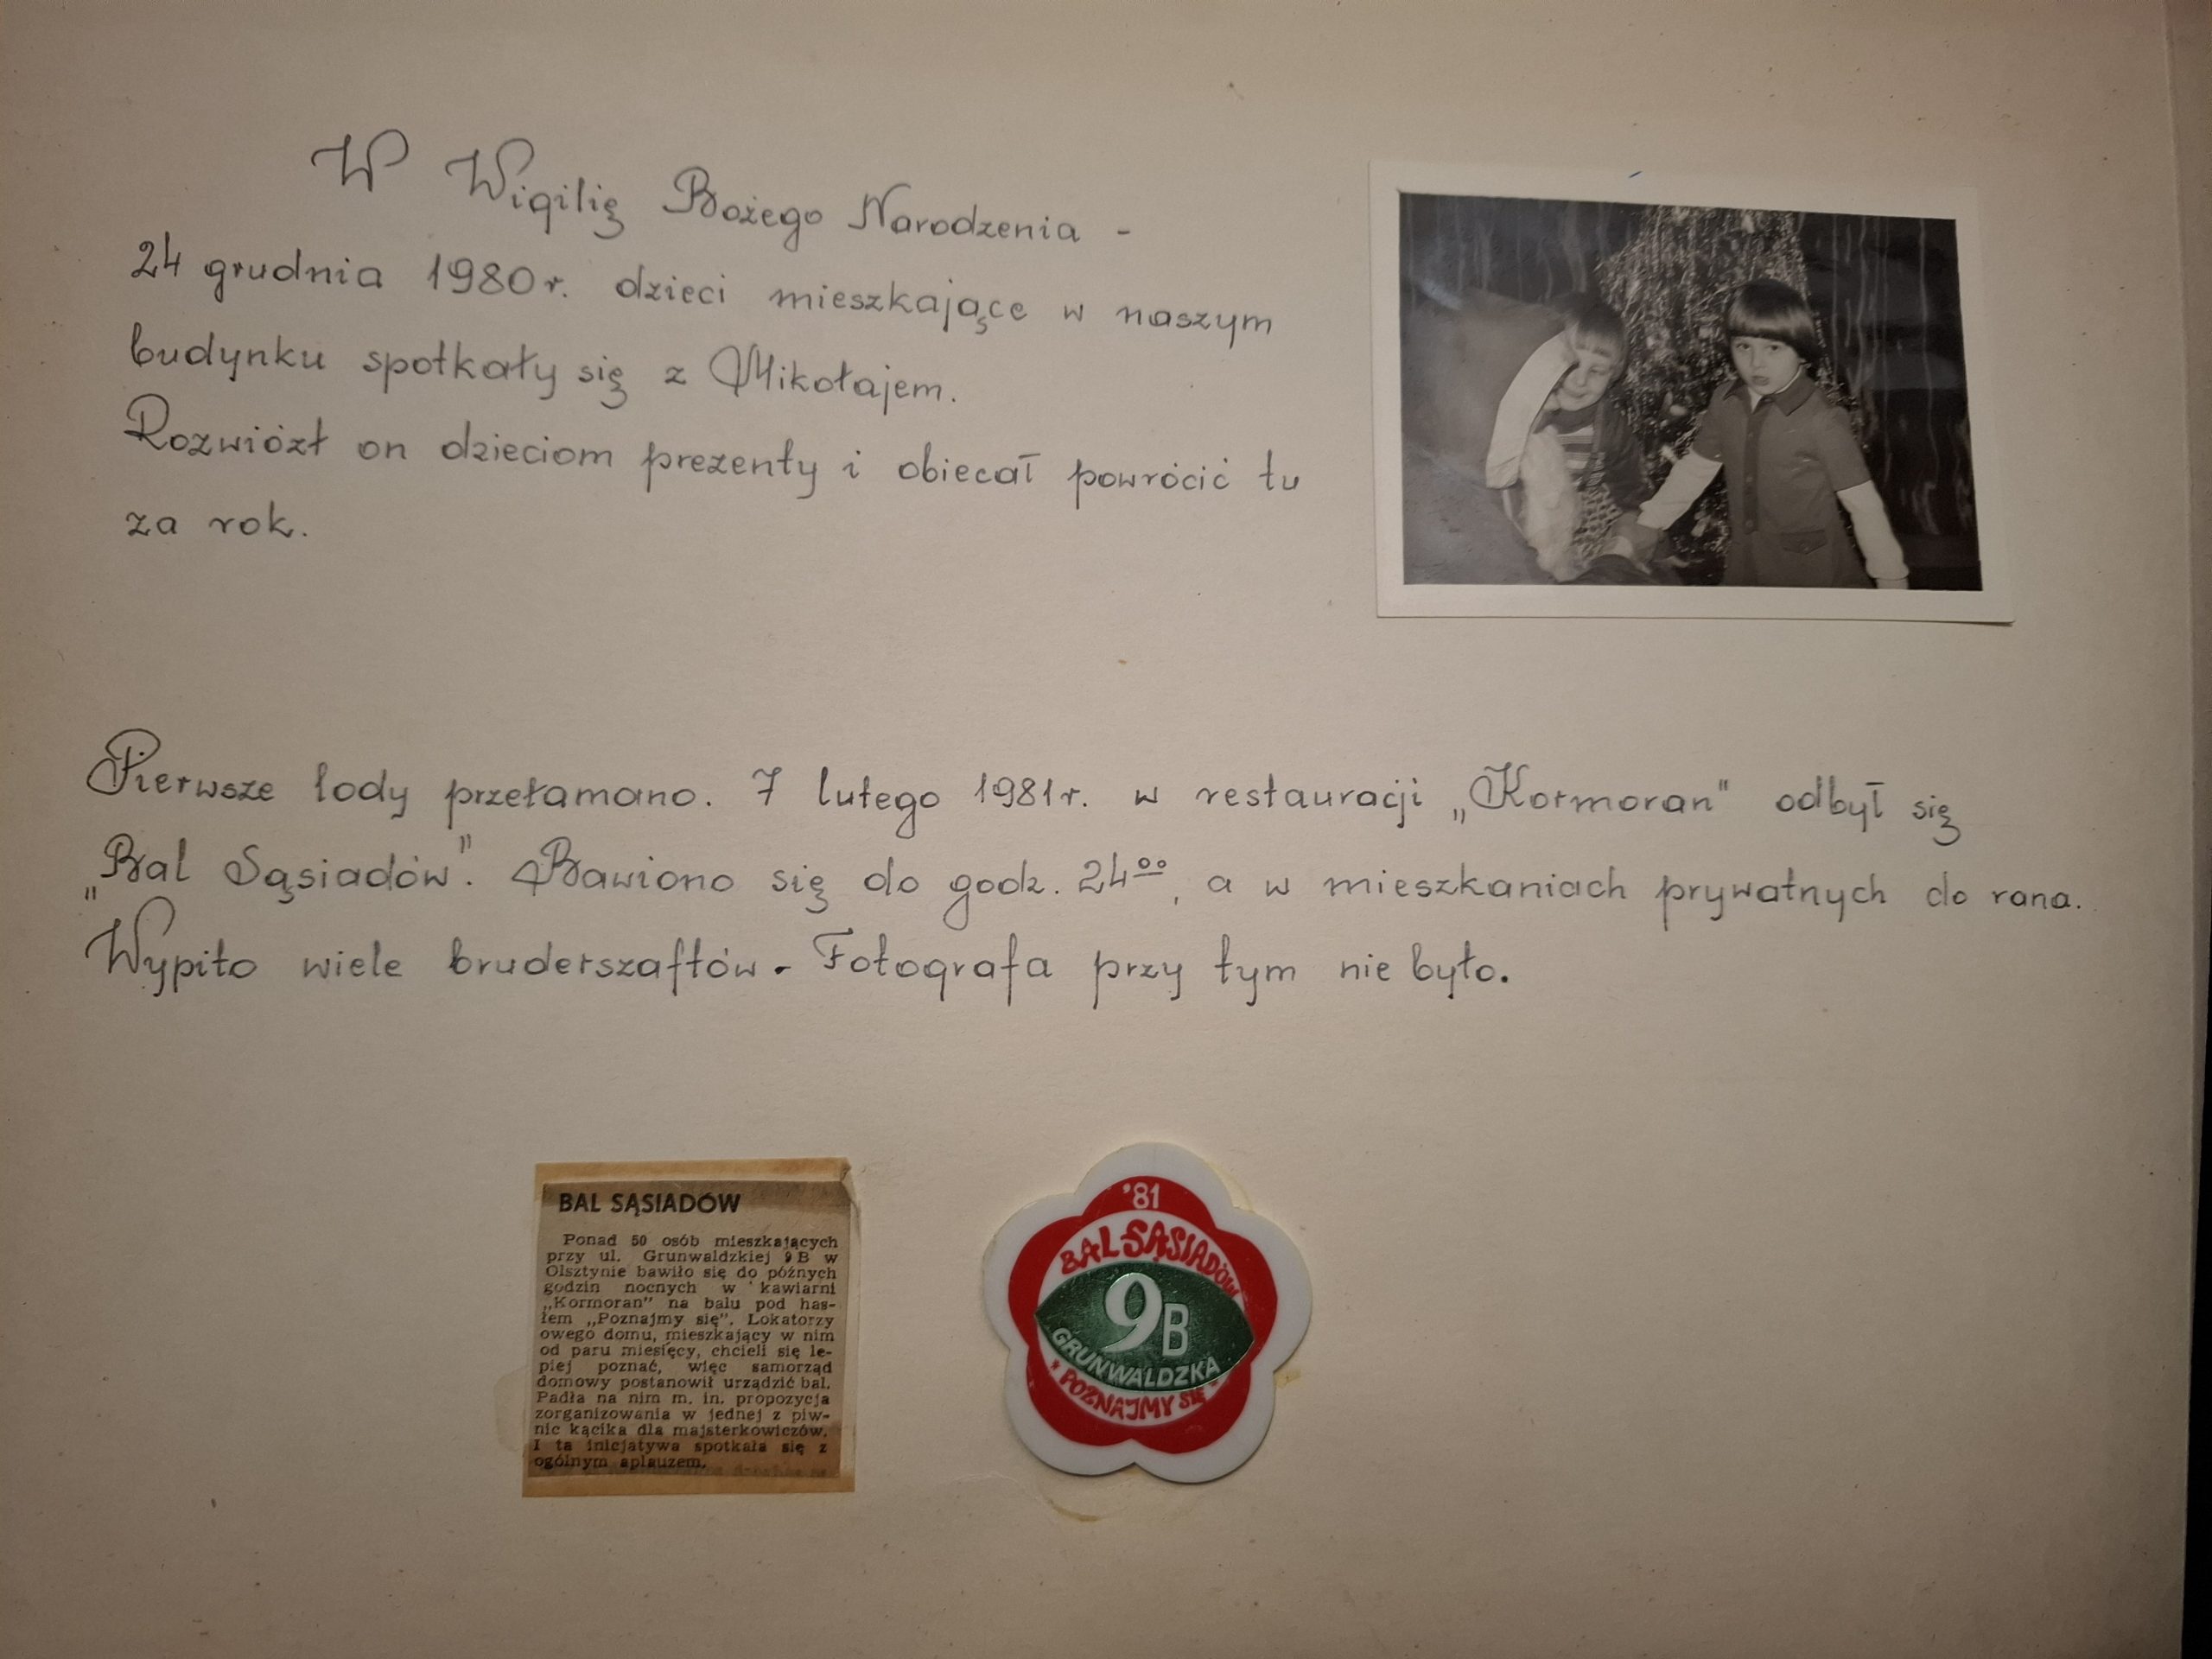 W Wigilię Bożego Narodzenia -
24 grudnia 1980r. dzieci mieszkające w naszym
budynku spotkały się z Mikołajem.
Rozwiózł on dzieciom prezenty i obiecał powrócić tu
za rok.
Pierwsze lody przełamano. 7 lutego 1981r. w restauracji „Kormoran" odbył się
„Bal Sąsiadów". Bawiono się do godz. 24⁰⁰, a w mieszkaniach prywatnych do rana.
Wypito wiele bruderszaftów. Fotografa przy tym nie było.
BAL SĄSIADÓW
Ponad 50 osób mieszkających
przy ul. Grunwaldzkiej 9 B w
Olsztynie bawiło się do późnych
godzin nocnych w kawiarni
„Kormoran" na balu pod has-
łem „Poznajmy się". Lokatorzy
owego domu, mieszkający w nim
od paru miesięcy, chcieli się le-
piej poznać, więc samorząd
domowy postanowił urządzić bal.
Padła na nim m. in. propozycja
zorganizowania w jednej z piw-
nic kącika dla majsterkowiczów.
I ta inicjatywa spotkała się z
ogólnym aplauzem.
'81
BAL SĄSIADÓW
9B
GRUNWALDZKA
POZNAJMY SIĘ